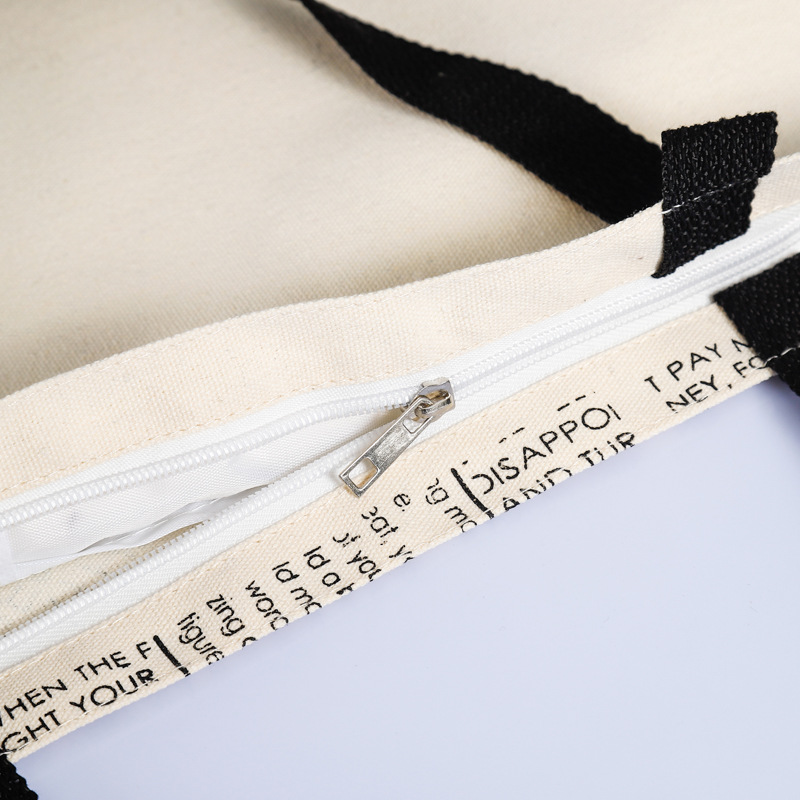 WHEN THE F
GHT YOUR
figure
zing
word
ld ma
ld a
of you
eat, y
e
ng ma
DISAPPOI
AND TUR
T PAY N
NEY, FO